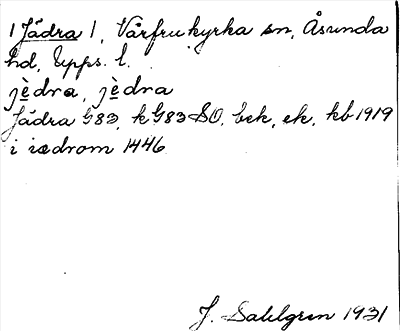 1 Jädra 1, Vårfrukyrka sn, Åsunda
hd, Upps. l.
jèdra, jèdra
Jädra G83, kG83 SO, bek, ek, kb 1919
i iædrom 1446
J. Sahlgren 1931